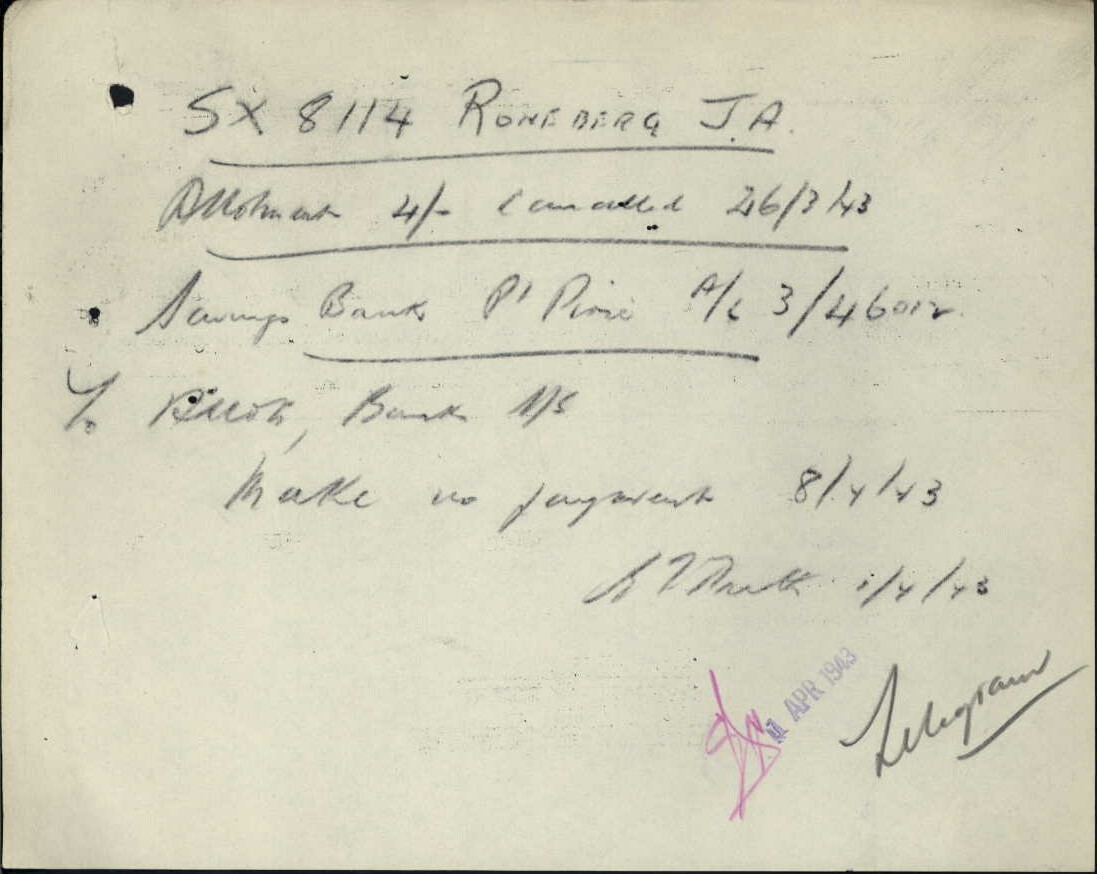 SX 8114 RONEBERG J.A.
Allotment 4/- Cancelled 26/3/43
Savings Bank Pt Pirie A/c 3/46012
To Allot, Bank
Make no payment 8/4/43
1/4/43
APR 1943
Telegram